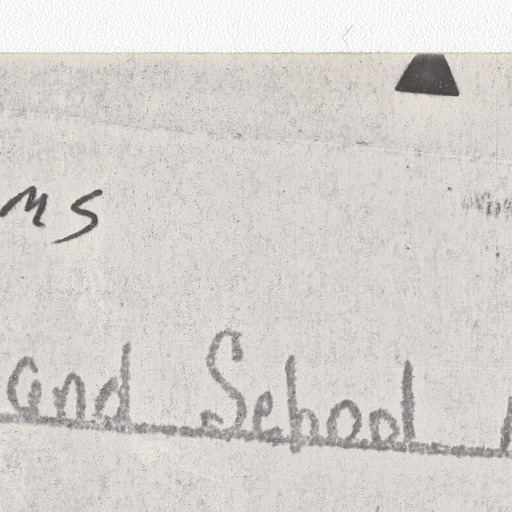 ms
and School